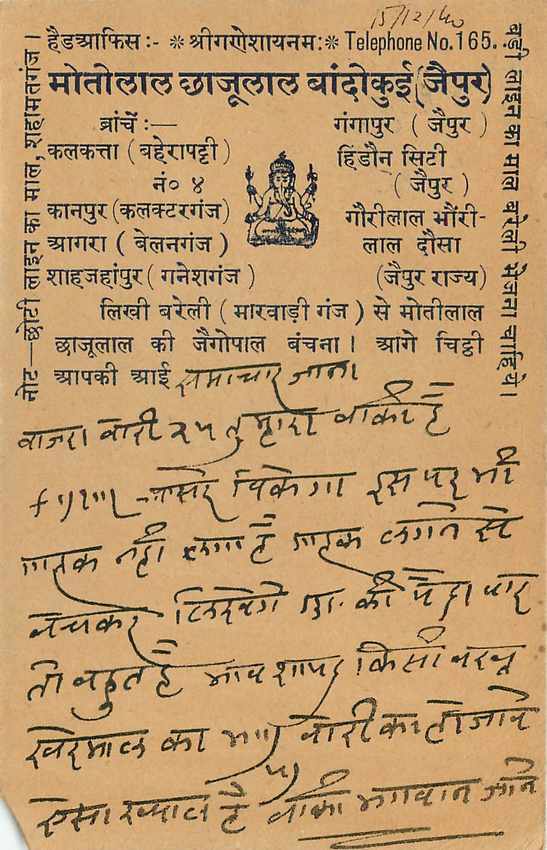 15/12/40
हैडआफिस :- * श्रीगणेशायनमः * Telephone No. 165.
मोतीलाल छाजूलाल बांदीकुई (जैपुर)
ब्रांचें :—
कलकत्ता ( बहेरापट्टी )
नं० ४
कानपुर (कलक्टरगंज)
आगरा ( बेलनगंज )
शाहजहांपुर ( गनेशगंज )
गंगापुर ( जैपुर )
हिंडौन सिटी
( जैपुर )
गौरीलाल भौंरी-
लाल दौसा
(जैपुर राज्य)
लिखी बरेली ( मारवाड़ी गंज ) से मोतीलाल
छाजूलाल की जैगोपाल बंचना । आगे चिट्ठी
आपकी आई समाचार जाना
नोट—छोटी लाइन का माल, शहामतगंज ।
बड़ी लाइन का माल बरेली भेजना चाहिये ।
बाजरा बोरी २५ तुम्हारा बाकी है
बिकेगा इस पर भी
गाहक नहीं लगा है गाहक लगने से
बेचकर लिखेंगे की पैदावार
तो बहुत है भाव शायद किसी वख्त
का बोरी का हो जावे
ऐसा ख्याल है बाकी भगवान जाने